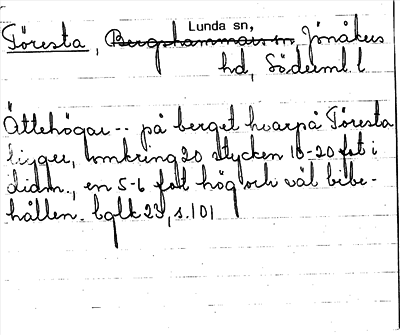 Lunda sn,
Töresta, Bergshammars sn Jönåkers
hd, Söderml. l
Ättehögar -- på berget hvarpå Töresta
ligger, omkring 20 stycken 10-20 fot i
diam., en 5-6 fot hög och väl bibe-
hållen. bglk 23, s. 101